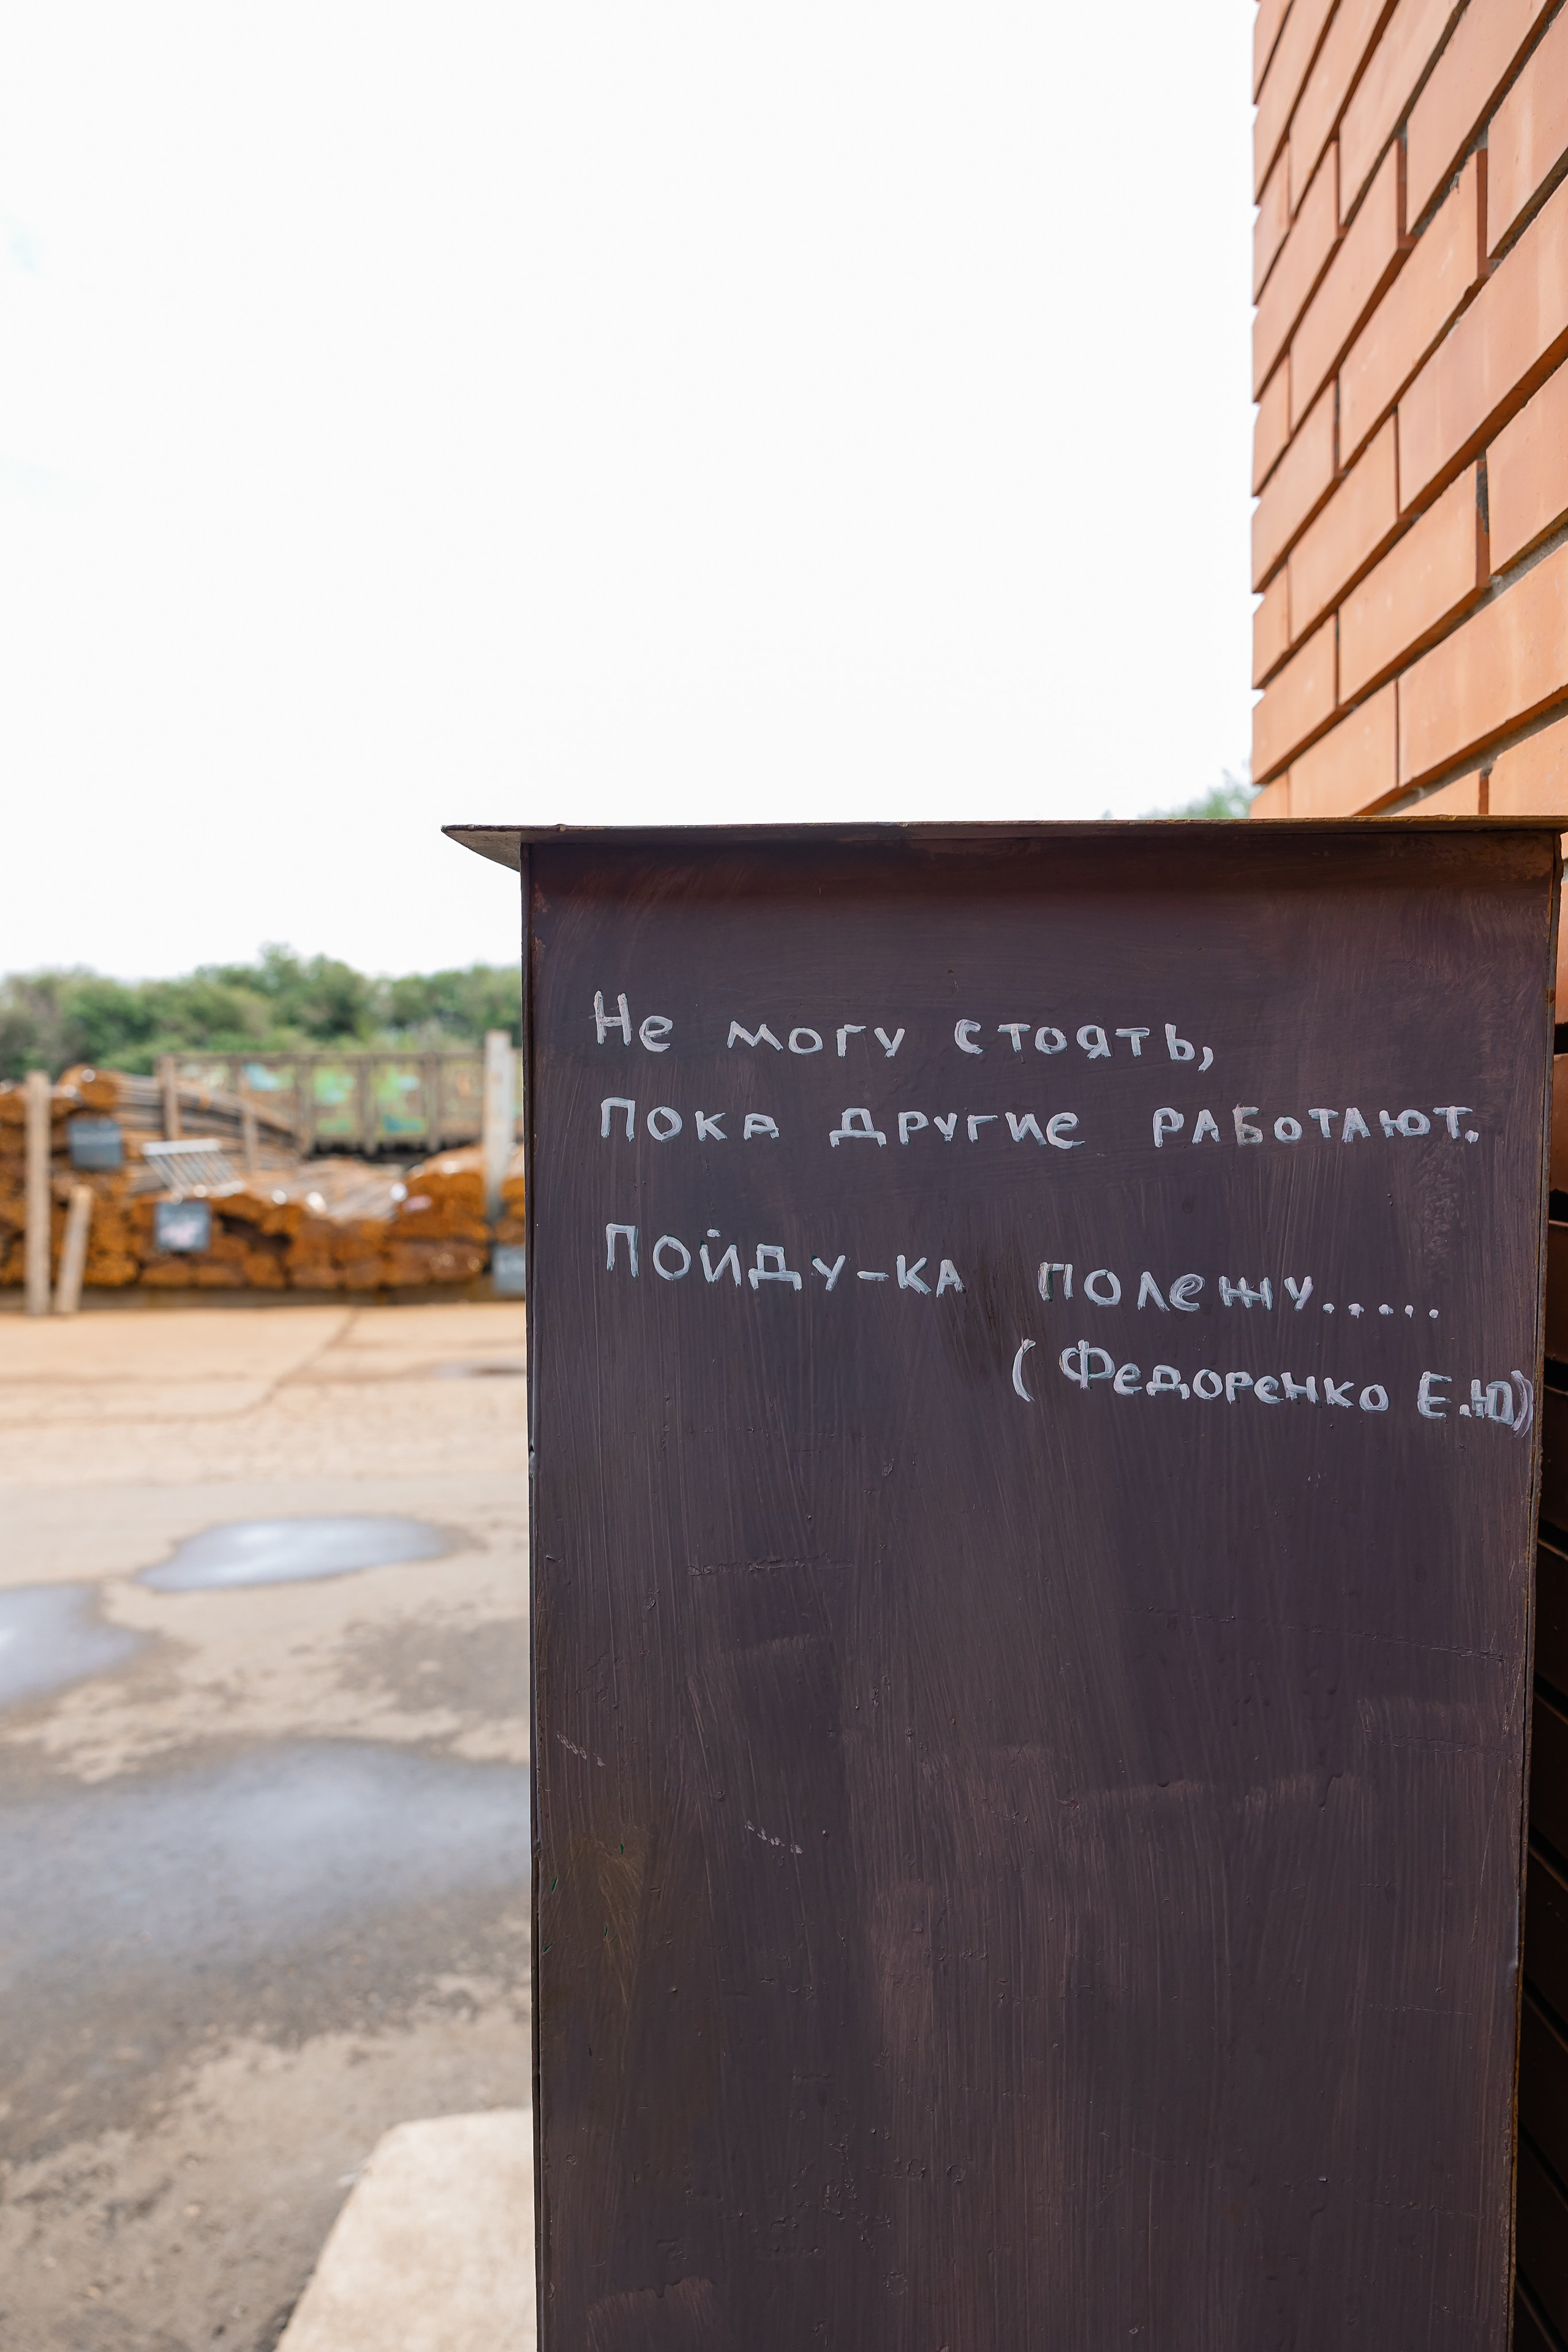 Не могу стоять,
пока другие работают.
Пойду-ка полежу.....
(Федоренко Е.Ю)